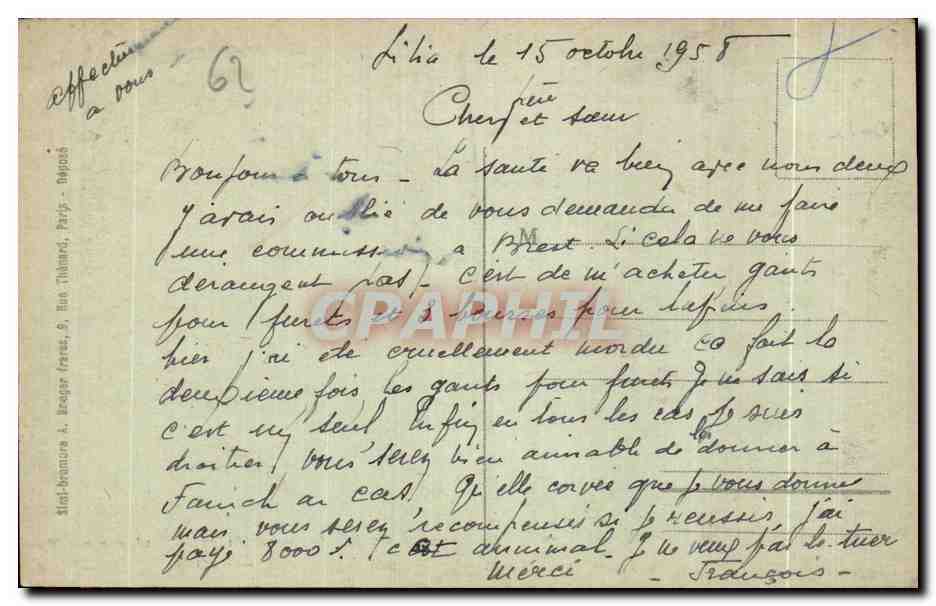 Lilia le 15 octobre 1958
Cher frère et sœur
Bonjour à tous - La santé va bien avec nous deux
J'avais oublié de vous demander de me faire
une commission a Brest. Si cela ne vous
derangent pas - c'est de m'acheter gants
pour furets et 2 bourses pour lapins.
hier j'ai été cruellement mordu ca fait la
deuxieme fois les gants pour furets Je ne sais si
c'est un seul Enfin en tous les cas Je suis
droitier vous serez bien aimable de les donner à
Fanich ar cas Qu'elle corvee que je vous donne
mais vous serez recompensés si je reussis j'ai
payé 8000 f. cet annimal - Je ne veux pas le tuer
Merci - François -
affectueusement
a vous
62
M
CPARHIL
Simi-bromure A. Breger frères, 9, Rue Thénard, Paris - Déposé